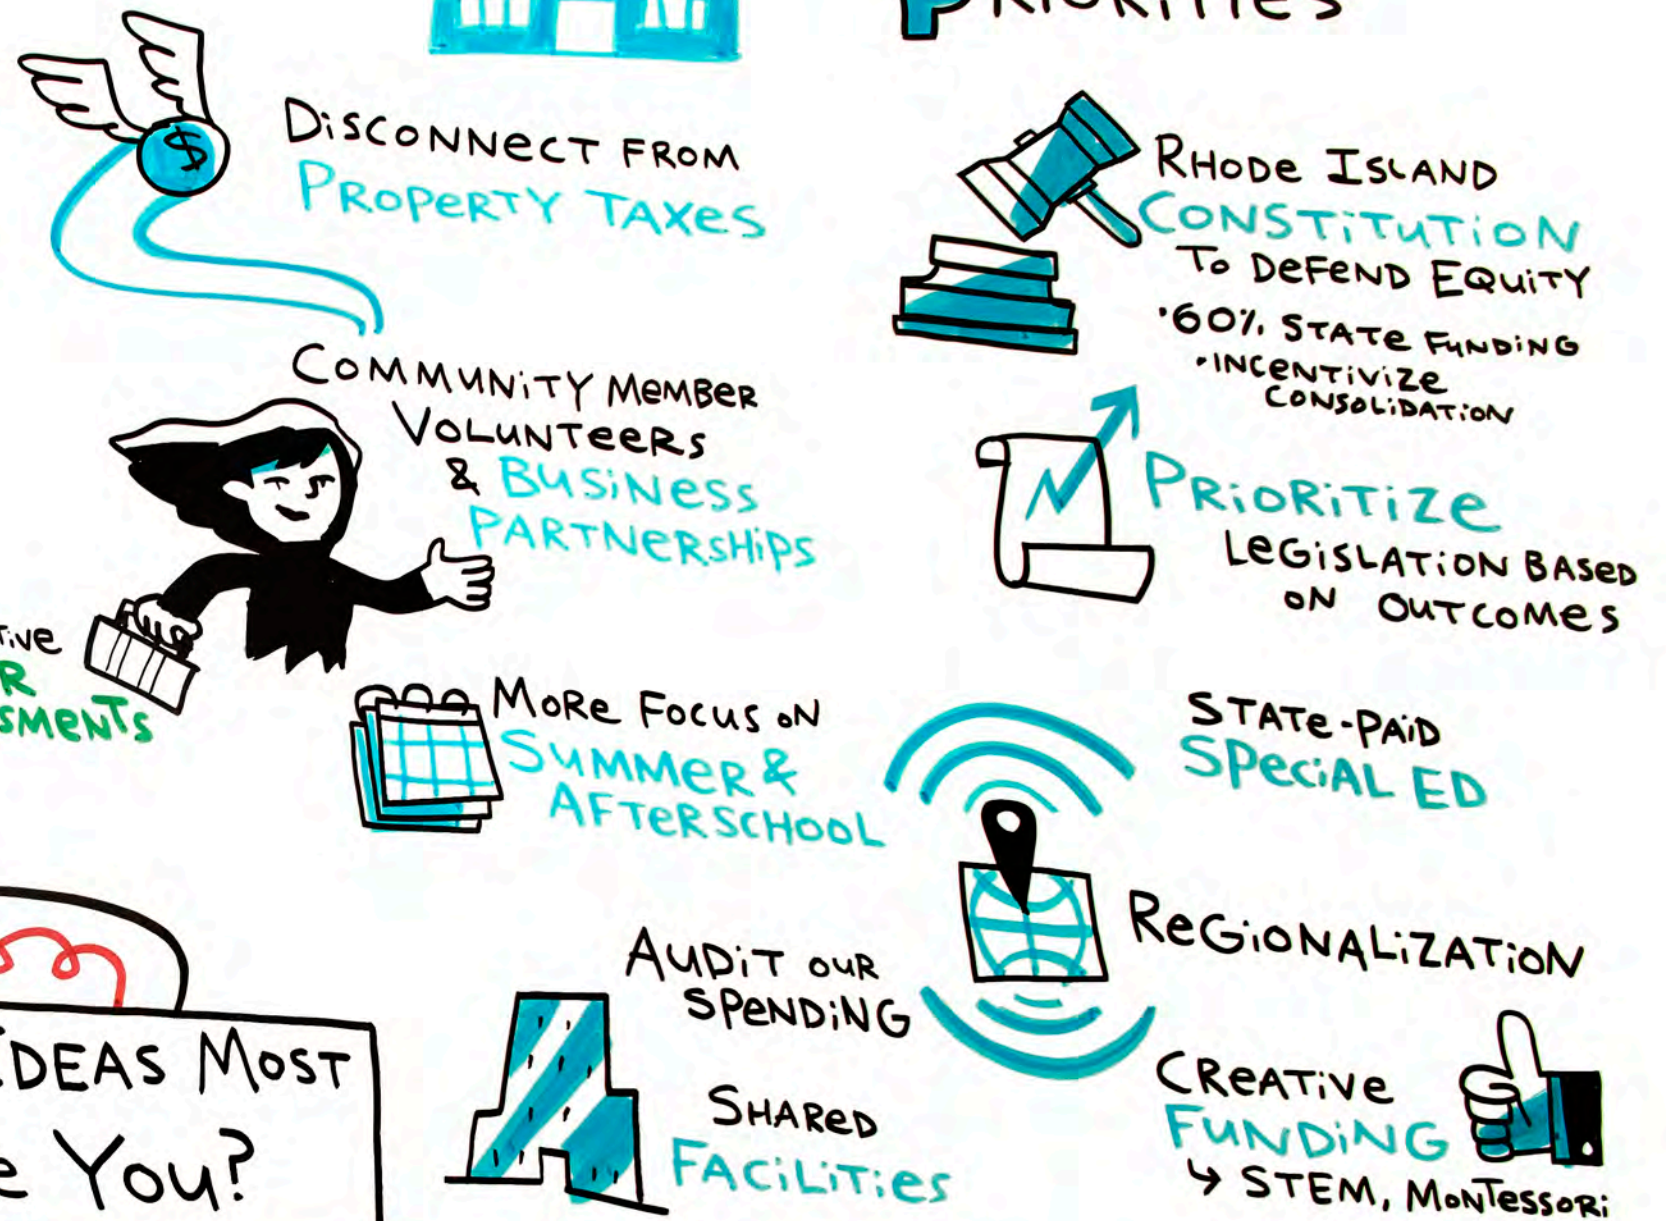 PRIORITIES
$
DISCONNECT FROM
PROPERTY TAXES
COMMUNITY MEMBER
VOLUNTEERS
& BUSINESS
PARTNERSHIPS
SMENTS
MORE FOCUS ON
SUMMER &
AFTERSCHOOL
AUDIT OUR
SPENDING
SHARED
FACILITIES
IDEAS MOST
YOU?
RHODE ISLAND
CONSTITUTION
TO DEFEND EQUITY
•60% STATE FUNDING
•INCENTIVIZE
CONSOLIDATION
PRIORITIZE
LEGISLATION BASED
ON OUTCOMES
STATE-PAID
SPECIAL ED
REGIONALIZATION
CREATIVE
FUNDING
↳ STEM, MONTESSORI